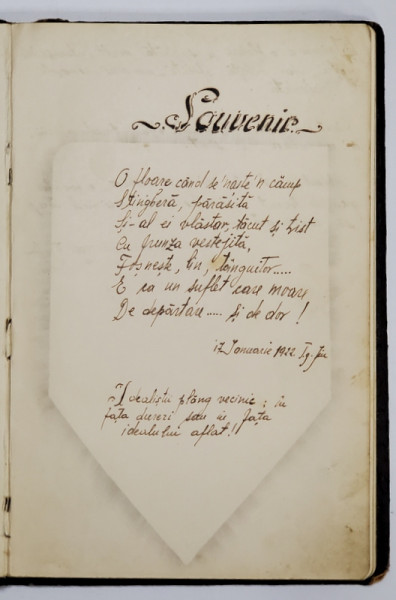 Souvenir.
O floare când se 'naste 'n câmp
Stingheră, părăsită
Și-al ei vlăstar, tăcut și trist
Cu frunza vestejită,
Foșnește, lin, tânguitor.....
E ca un suflet care moare
De depărtare..... și de dor!
17 Ianuarie 1922. Tg.-Jiu
Idealiștii plâng vecinic; în
fața durerei sau in fața
idealului aflat!